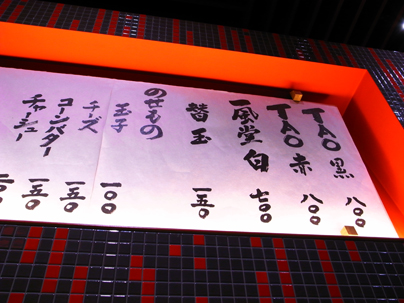 TAO 黒 八〇〇
TAO 赤 八〇〇
一風堂 白 七〇〇
替玉 一五〇
のせもの
玉子 一〇〇
チーズ 一五〇
コーンバター 一五〇
チャーシュー